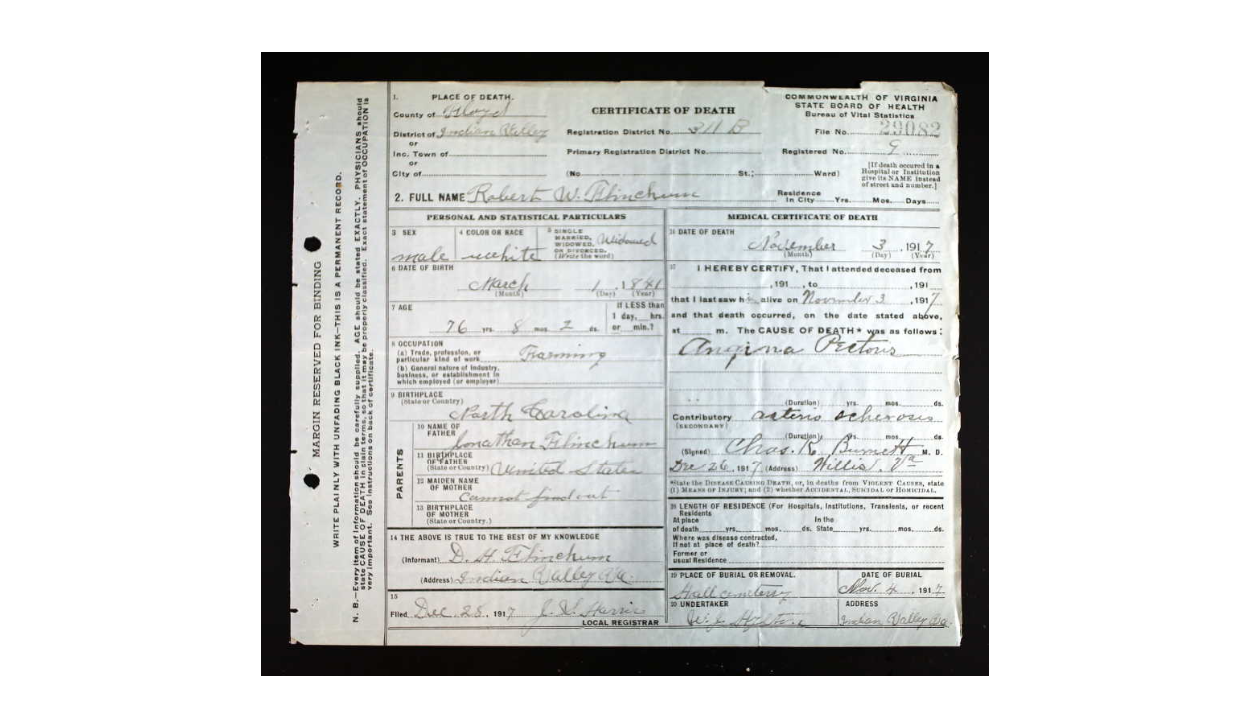 MARGIN RESERVED FOR BINDING
WRITE PLAINLY WITH UNFADING BLACK INK—THIS IS A PERMANENT RECORD.
N. B.—Every item of information should be carefully supplied. AGE should be stated EXACTLY. PHYSICIANS should
state CAUSE OF DEATH in plain terms, so that it may be properly classified. Exact statement of OCCUPATION is
very important. See instructions on back of certificate.
1. PLACE OF DEATH.
County of Floyd
District of Indian Valley
or
Inc. Town of
or
City of
CERTIFICATE OF DEATH
Registration District No. 311 B
Primary Registration District No.
(No. St.; Ward)
COMMONWEALTH OF VIRGINIA
STATE BOARD OF HEALTH
Bureau of Vital Statistics
File No. 29082
Registered No. 9
[If death occured in a
Hospital or Institution
give its NAME instead
of street and number.]
2. FULL NAME Robert W. Flinchum
Residence
In City Yrs. Mos. Days
PERSONAL AND STATISTICAL PARTICULARS
3 SEX
male
4 COLOR OR RACE
white
5 SINGLE
MARRIED,
WIDOWED,
OR DIVORCED.
(Write the word)
Widowed
6 DATE OF BIRTH
March 1, 1841
(Month) (Day) (Year)
7 AGE
76 yrs. 8 mos. 2 ds.
If LESS than
1 day, hrs.
or min.?
8 OCCUPATION
(a) Trade, profession, or
particular kind of work Farming
(b) General nature of industry,
business, or establishment in
which employed (or employer)
9 BIRTHPLACE
(State or Country)
North Carolina
PARENTS
10 NAME OF
FATHER
Jonathan Flinchum
11 BIRTHPLACE
OF FATHER
(State or Country) United States
12 MAIDEN NAME
OF MOTHER
cannot find out
13 BIRTHPLACE
OF MOTHER
(State or Country.)
14 THE ABOVE IS TRUE TO THE BEST OF MY KNOWLEDGE
(Informant) D. H. Flinchum
(Address) Indian Valley Va.
15
Filed Dec. 28, 1917 Harris
LOCAL REGISTRAR
MEDICAL CERTIFICATE OF DEATH
16 DATE OF DEATH
November 3, 1917
(Month) (Day) (Year)
17 I HEREBY CERTIFY, That I attended deceased from
, 191 , to , 191
that I last saw him alive on November 3, 1917
and that death occurred, on the date stated above,
at m. The CAUSE OF DEATH* was as follows:
Angina Pectoris
(Duration) yrs. mos. ds.
Contributory arterio schlerosis
(SECONDARY)
(Duration) yrs. mos. ds.
(Signed) Chas. K Burnett M. D.
Dec 26, 1917 (Address) Willis, Va
*State the DISEASE CAUSING DEATH, or, in deaths from VIOLENT CAUSES, state
(1) MEANS OF INJURY; and (2) whether ACCIDENTAL, SUICIDAL or HOMICIDAL.
18 LENGTH OF RESIDENCE (For Hospitals, Institutions, Transients, or recent
Residents
At place In the
of death yrs. mos. ds. State yrs. mos. ds.
Where was disease contracted,
If not at place of death?
Former or
usual Residence
19 PLACE OF BURIAL OR REMOVAL.
Hall cemetery
DATE OF BURIAL
Nov. 4, 1917
20 UNDERTAKER
ADDRESS
Indian Valley Va.